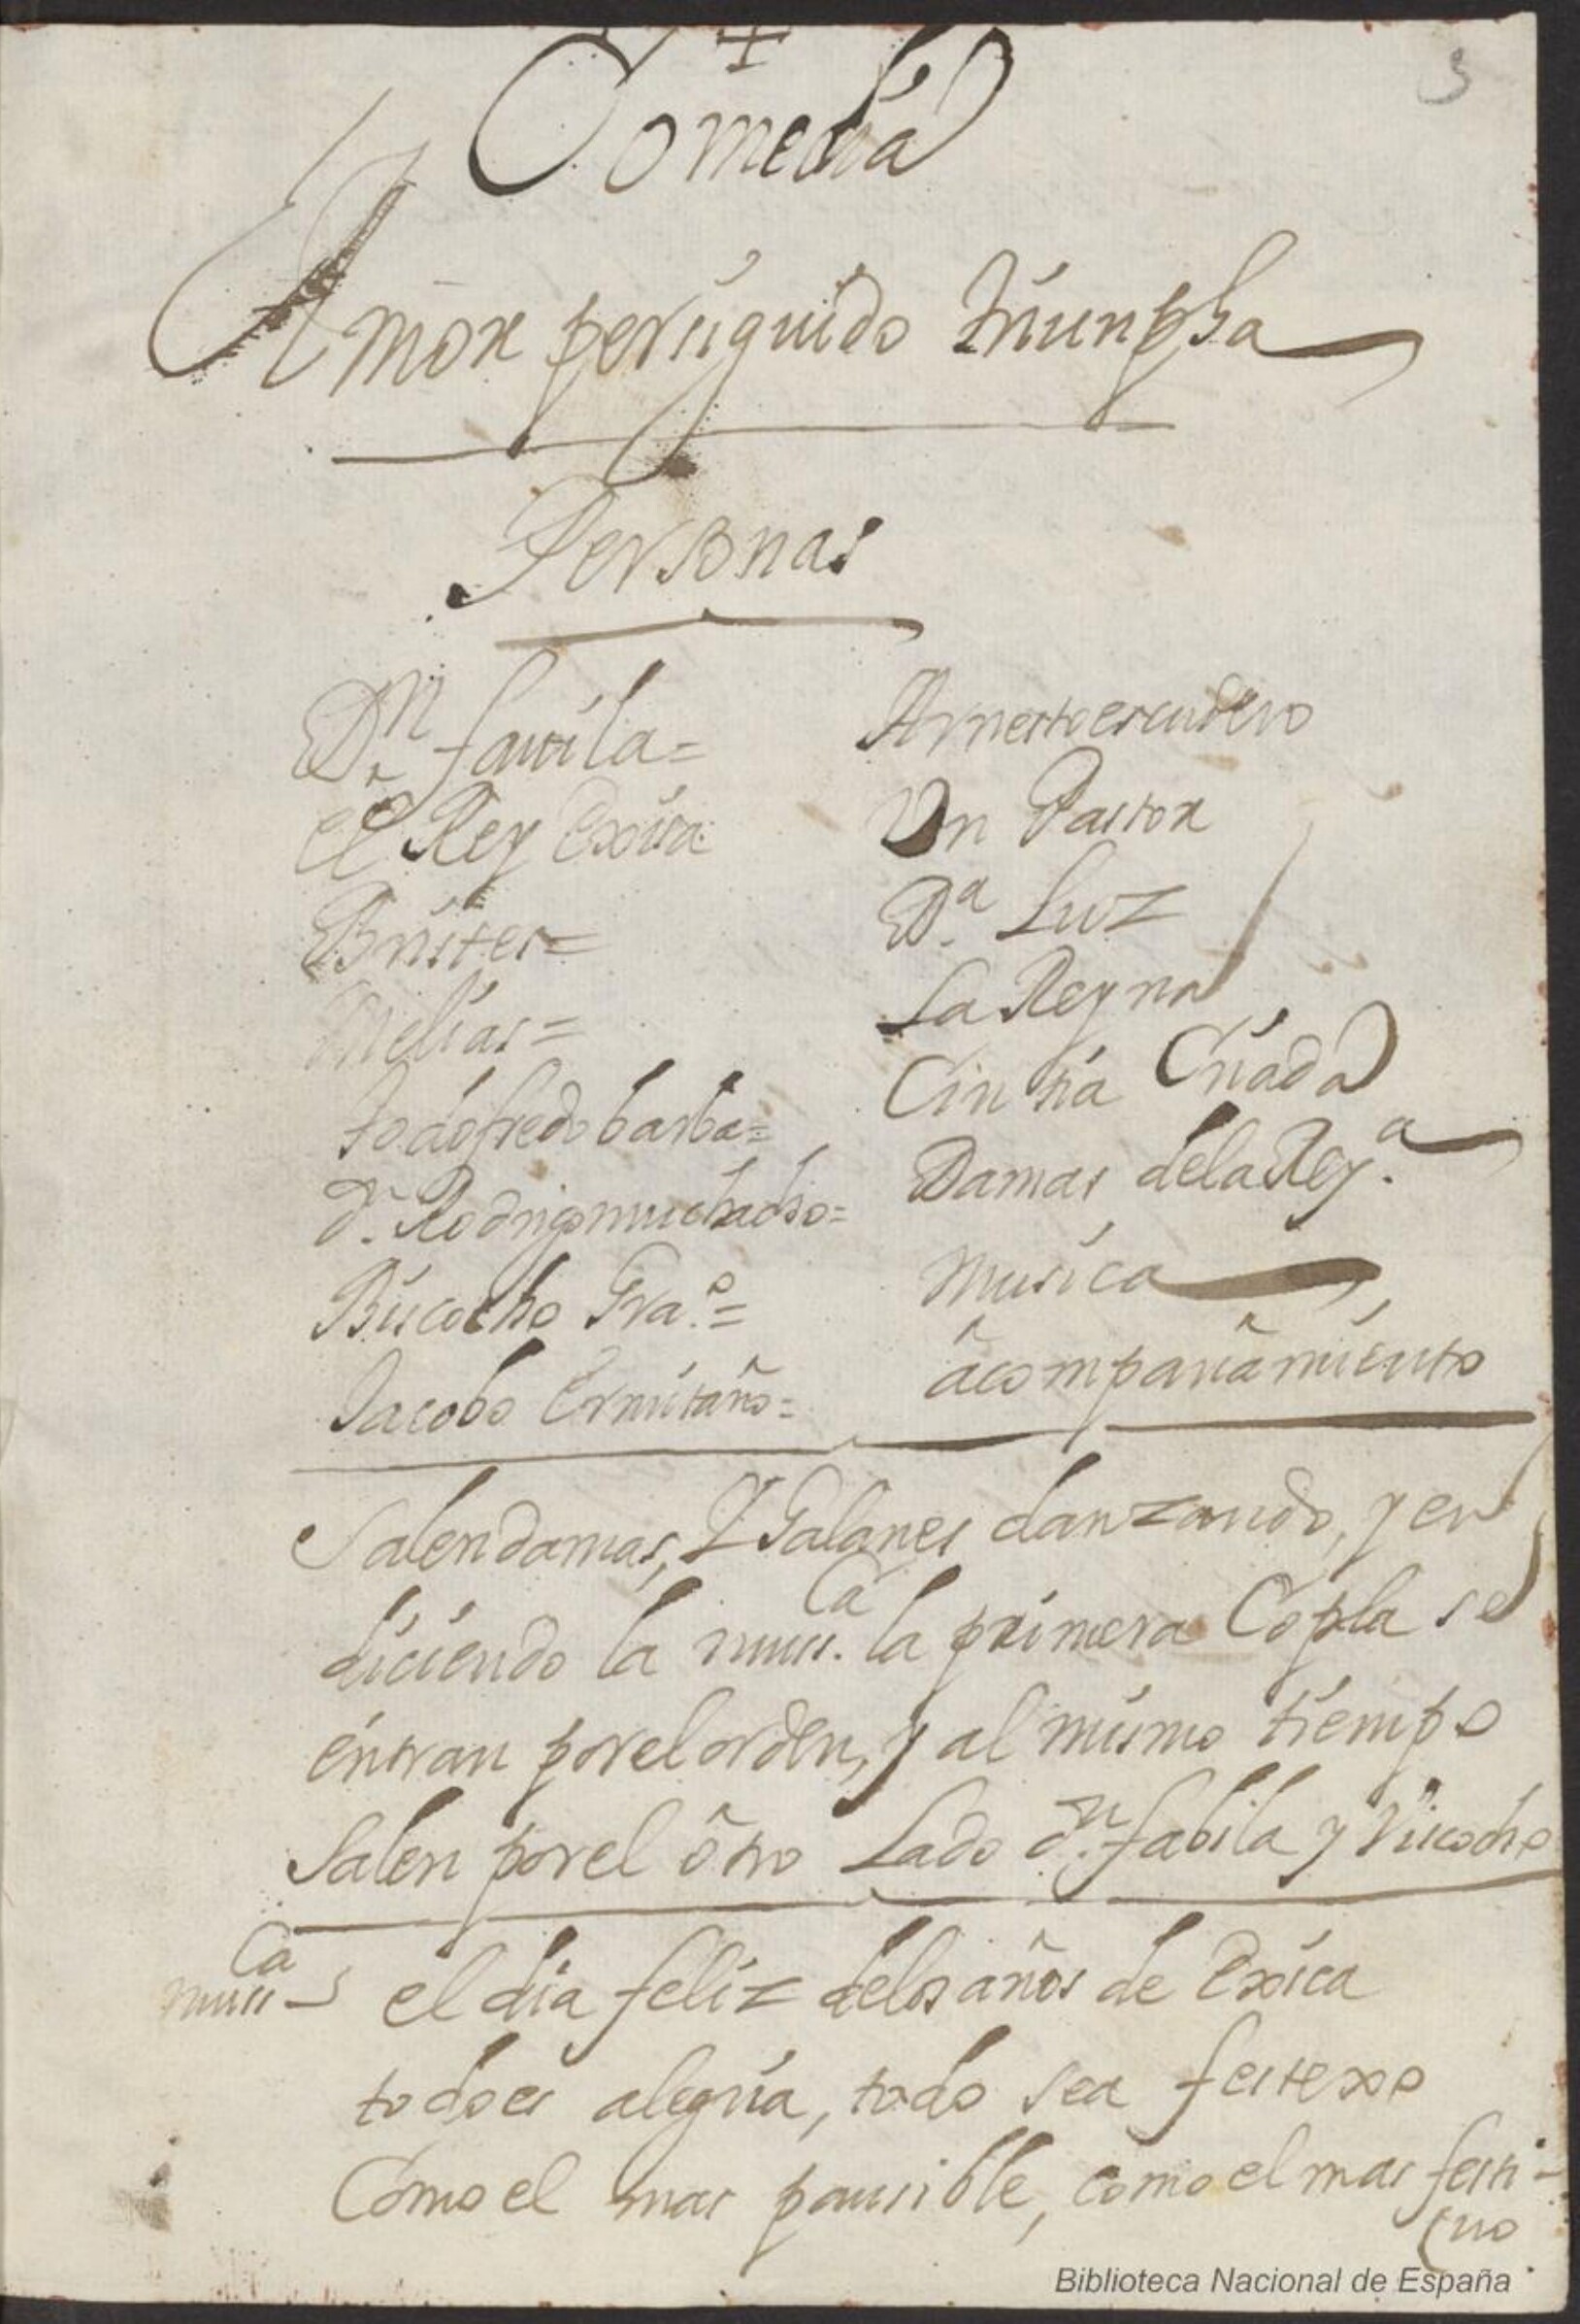 +
3
Comedia
Amor perseguido triunpha
Personas
Dn. favila=
el Rey Exica
Bristes=
Melias=
Todofredo barba=
Dn. Rodrigo muchacho=
Biscocho Gra.o=
Jacobo Ermitaño=
Arnesto escudero
Vn Pastor
Da. Luz
La Reyna
Cintia Criada
Damas dela Rey.a
Musica
acompañamiento
Salen damas, Y Galanes danzando, y en
diciendo la mus.ca la primera Copla se
entran por el orden, y al mismo tiempo
Salen por el otro Lado dn. fabila y Viscocho
musca el dia feliz delos años de Exica
todo es alegria, todo sea festexo
Como el mas pausible, como el mas festi-
(uo
Biblioteca Nacional de España